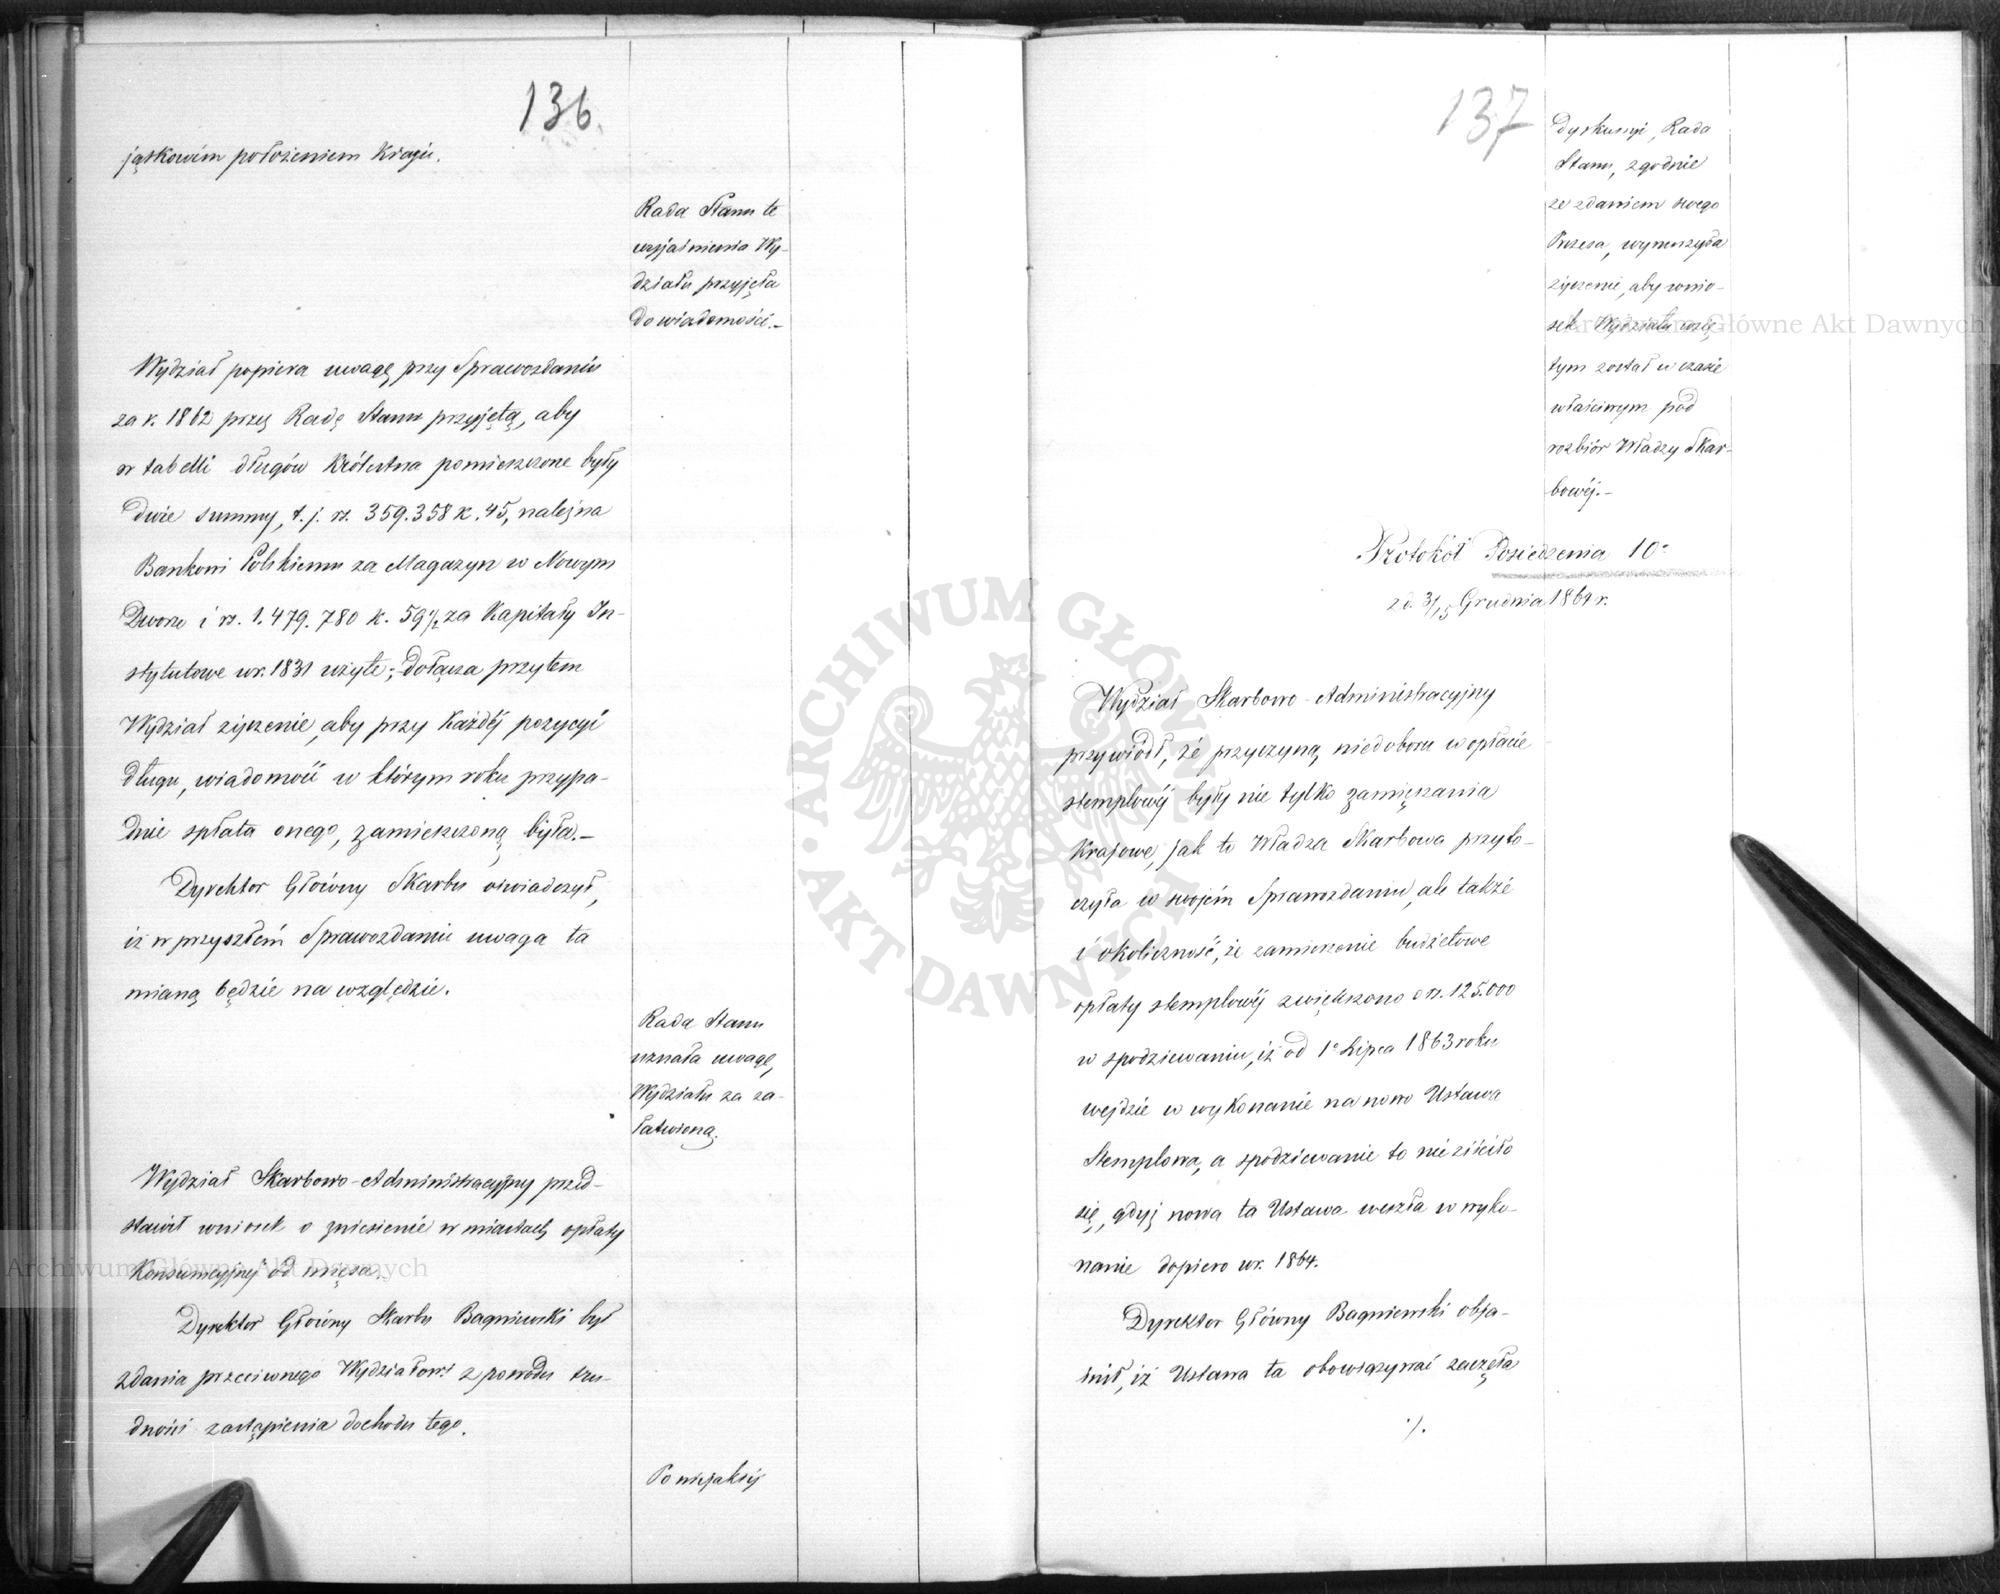 136.
jątkowém położeniem Kraju.
Rada Stanu te
wyjaśnienia Wy-
działu przyjęła
do wiadomości.-
Wydział popiera uwagę przy Sprawozdaniu
za r. 1862 przez Radę Stanu przyjętą, aby
w tabelli długów Królestwa pomieszczone były
dwie summy, t. j. rs. 359.358 k. 45, należna
Bankowi Polskiemu za Magazyn w Nowym
Dworze i rs. 1.479.780 k. 59½ za Kapitały In-
stytutowe w r. 1831 użyte; dołącza przytem
Wydział życzenie, aby przy każdéj pozycyi
długu, wiadomość w którym roku przypa-
dnie spłata onego, zamieszczoną była.-
Dyrektor Główny Skarbu oświadczył,
iż w przyszłém Sprawozdaniu uwaga ta
mianą będzie na względzie.
Rada Stanu
uznała uwagę
Wydziału za za-
łatwioną.
Wydział Skarbowo-Administracyjny przed-
stawił wniosek o zniesienie w miastach opłaty
Konsumcyjnej od mięsa.
Dyrektor Główny Skarbu Bagniewski był
zdania przeciwnego Wydziałowi z powodu tru-
dności zastąpienia dochodu tego.
Po niejakiéj
137
dyskussyi, Rada
Stanu, zgodnie
ze zdaniem swego
Prezesa, wynurzyła
życzenie, aby wnio-
sek Wydziału wzię-
tym został w czasie
właściwym pod
rozbiór Władzy Skar-
bowéj.-
Protokół Posiedzenia 10o
z d. 3/15 Grudnia 1864 r.
Wydział Skarbowo-Administracyjny
przywiódł, że przyczyną niedoboru w opłacie
stemplowéj były nie tylko zamięszania
Krajowe, jak to Władza Skarbowa przyto-
czyła w swojém Sprawozdaniu, ale także
i okoliczność, że zamieszczenie budżetowe
opłaty stemplowéj zwiększono o rs. 125.000
w spodziewaniu, iż od 1o Lipca 1863 roku
wejdzie w wykonanie na nowo Ustawa
Stemplowa, a spodziewanie to nie ziściło
się, gdyż nowa ta Ustawa weszła w wyko-
nanie dopiero w r. 1864.
Dyrektor Główny Bagniewski obja-
śnił, iż Ustawa ta obowiązywać zaczęła
./.
ARCHIWUM GŁÓWNE AKT DAWNYCH
Archiwum Główne Akt Dawnych
Archiwum Główne Akt Dawnych